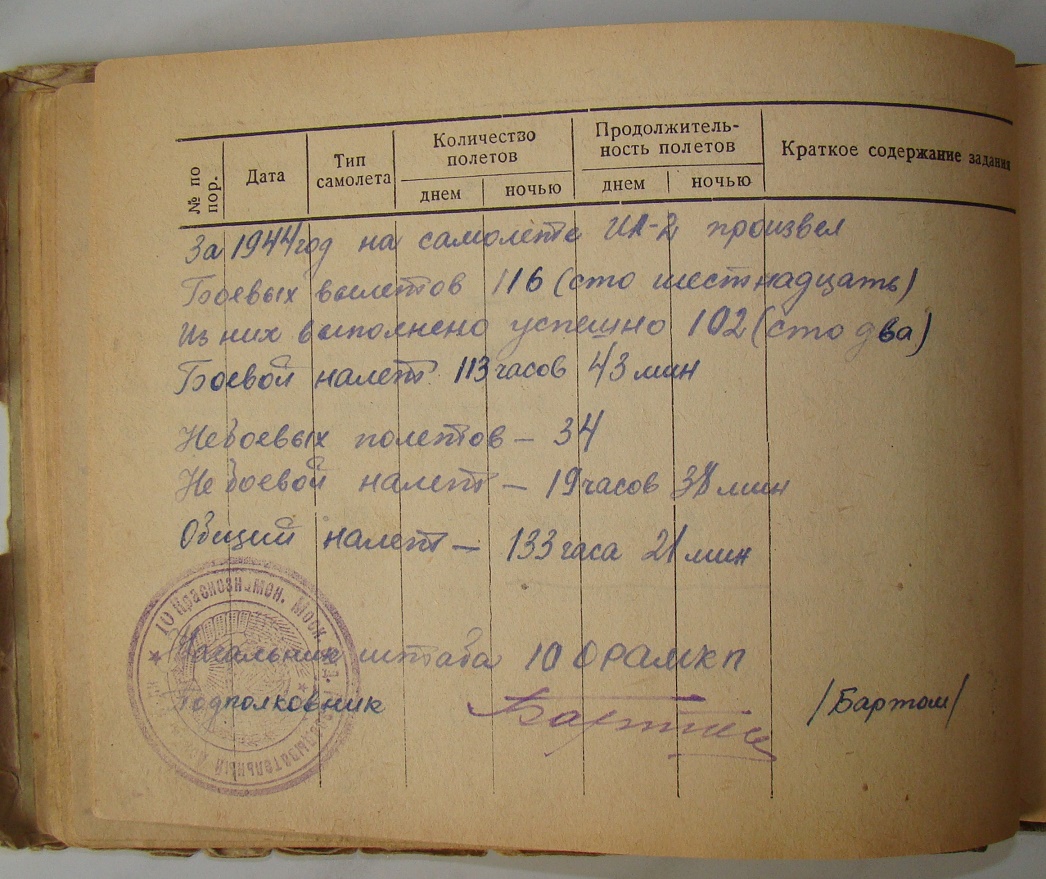 № по пор.
Дата
Тип самолета
Количество полетов
днем
ночью
Продолжитель-
ность полетов
днем
ночью
Краткое содержание задания
За 1944 год на самолете ИЛ-2 произвел
Боевых вылетов 116 (сто шестнадцать)
Из них выполнено успешно 102 (сто два)
Боевой налет 113 часов 43 мин
Небоевых полетов – 34
Небоевой налет – 19 часов 38 мин
Общий налет – 133 часа 21 мин
Начальник штаба 10 ОРАМКП
Подполковник
/Бартош/
10 Краснознамен. Моск.